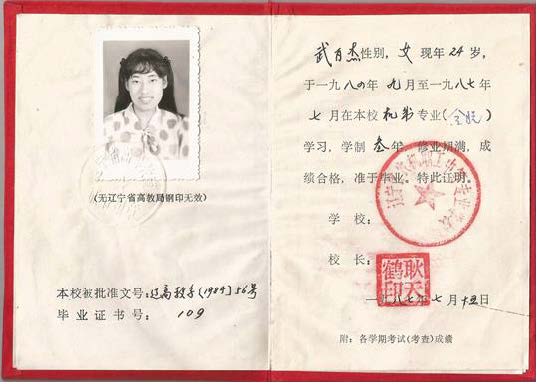 (无辽宁省高教局钢印无效)
本校被批准文号:辽高教字(1984)56号
毕业证书号: 109
性别,女 现年24岁,
于一九八〇年九月至一九八七年
七月在本校 专业( )
学习,学制叁年,修业期满,成
绩合格,准于毕业。特此证明。
学 校:
校 长:
耿天鹤印
一九八七年七月十五日
附:各学期考试(考查)成绩